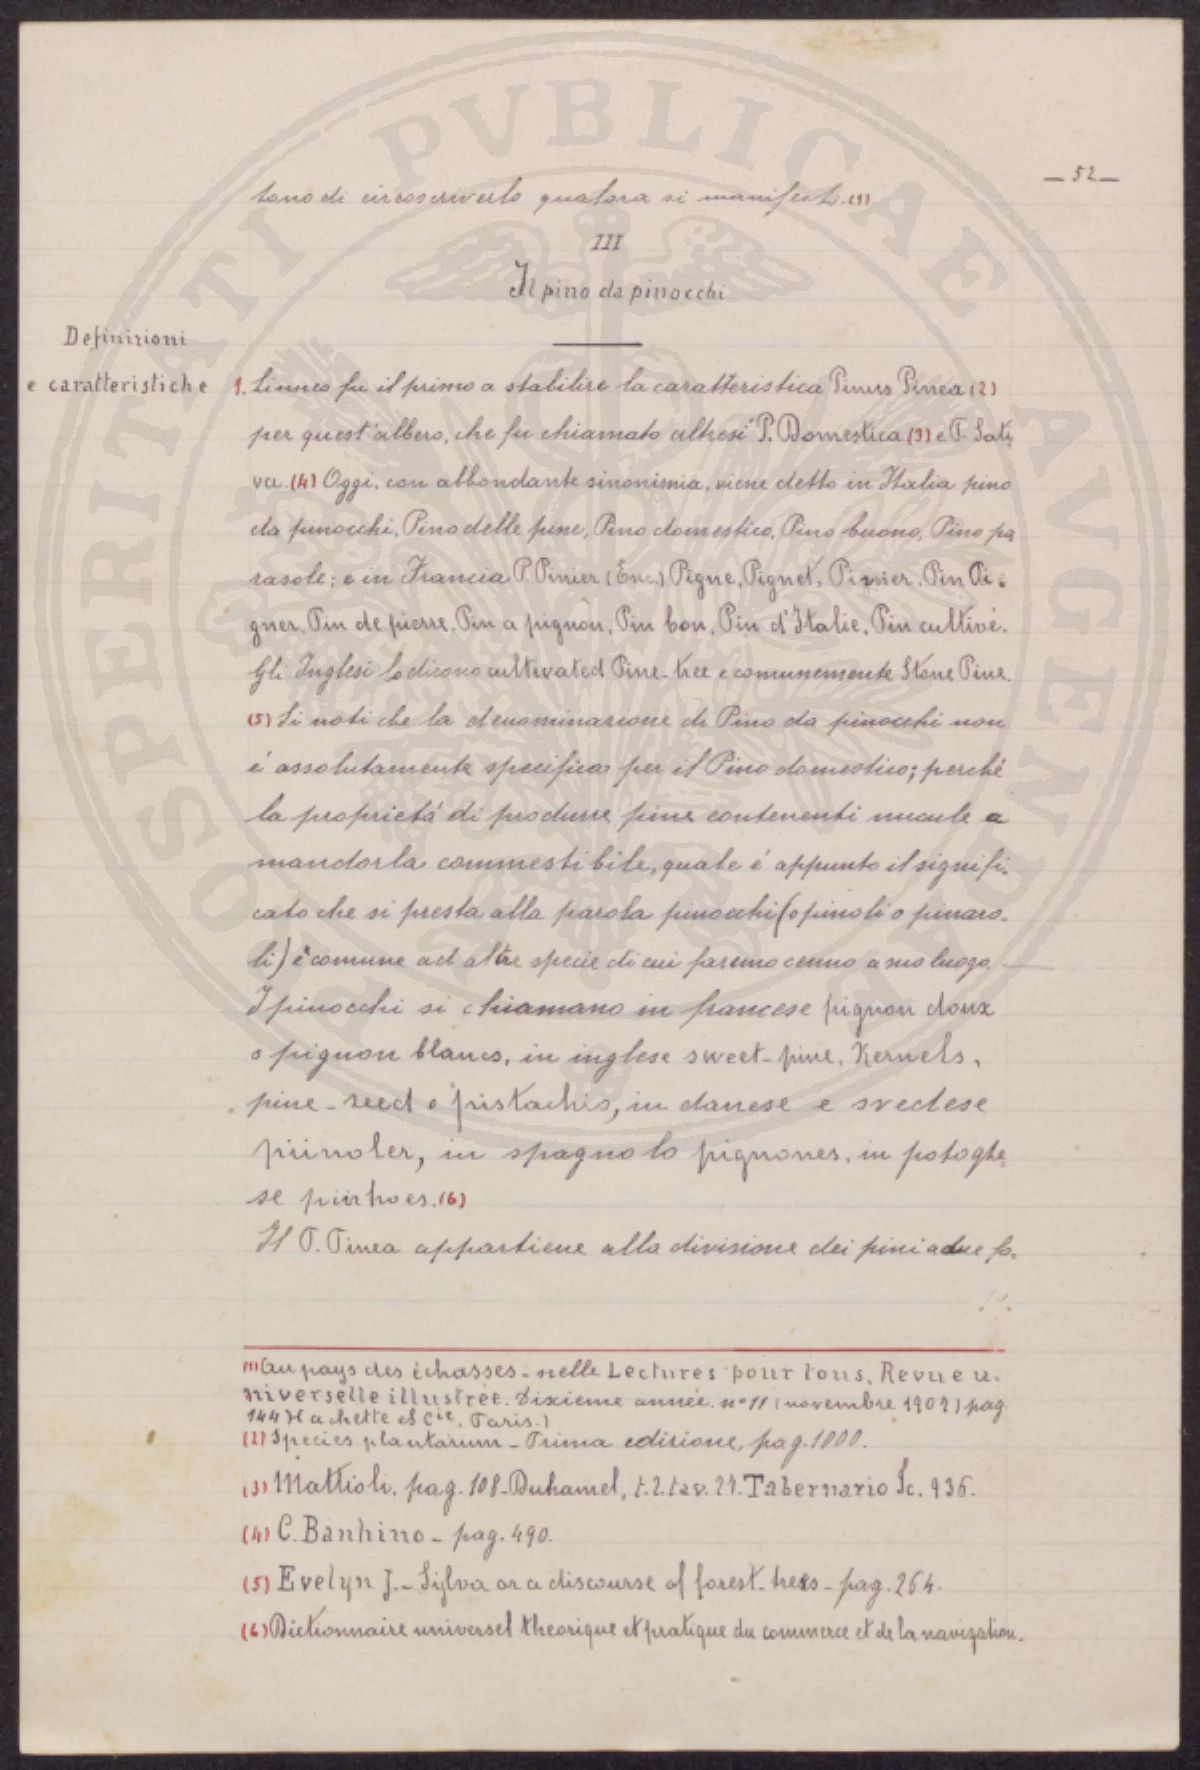 — 52 —
tono di circoscriverlo qualora si manifesti. (1)
III
Il pino da pinocchi
Definizioni
e caratteristiche
1. Linneo fu il primo a stabilire la caratteristica Pinus Pinea (2)
per quest'albero, che fu chiamato altresi' P. Domestica (3) e P. Sati-
va. (4) Oggi, con abbondante sinonimia, viene detto in Italia pino
da pinocchi, Pino delle pine, Pino domestico, Pino buono, Pino pa
rasole; e in Francia P. Pinier (Enc.) Pigne, Pignet, Pinier, Pin Pi-
gner, Pin de pierre, Pin a pignon, Pin bon, Pin d'Italie, Pin cultivé.
Gli Inglesi lo dicono cultivated Pine-tree e comunemente Stone Pine.
(5) Si noti che la denominazione di Pino da pinocchi non
é assolutamente specifica per il Pino domestico; perché
la proprietá di produrre pine contenenti nucule a
mandorla commestibile, quale é appunto il signifi-
cato che si presta alla parola pinocchi (o pinoli o pinaro-
li) é comune ad altre specie di cui faremo cenno a suo luogo
I pinocchi si chiamano in francese pignon doux
o pignon blancs, in inglese sweet-pine, Kernels,
pine-seed e pistachis, in danese e svedese
piinoler, in spagnolo pignones, in potoghe-
se pinhoes. (6)
Il P. Pinea appartiene alla divisione dei pini a due fo-
(1) Au pays des échasses - nelle Lectures pour tous, Revue u-
niverselle illustrée. Dixieme année. n° 11 (novembre 1907) pag
144 Hachette et Cie, Paris.)
(2) Species plantarum - Prima edizione, pag. 1000.
(3) Mattioli, pag. 108 - Duhamel, t. 2. tav. 27. Tabernario Ic. 936.
(4) C. Banhino - pag. 490.
(5) Evelyn J. - Sylva or a discourse of forest-trees - pag. 264.
(6) Dictionnaire universel theorique et pratique du commerce et de la navigation.
PROSPERITATI PVBLICAE AVGENDAE